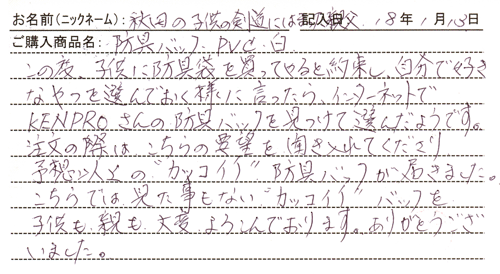 お名前(ニックネーム): 秋田の子供の剣道には 親父 記入日 18年 1月13日
ご購入商品名: 防具バッグ PVC 白
この度、子供に防具袋を買ってやると約束し、自分で好き
なやつを選んでおく様に言ったら、インターネットで
KENPROさんの防具バッグを見つけて選んだようです。
注文の際はこちらの要望を聞き入れてくださり
予想以上の"カッコイイ"防具バッグが届きました。
こちらでは見た事もない"カッコイイ"バッグを
子供も親も大変よろこんでおります。ありがとうござ
いました。